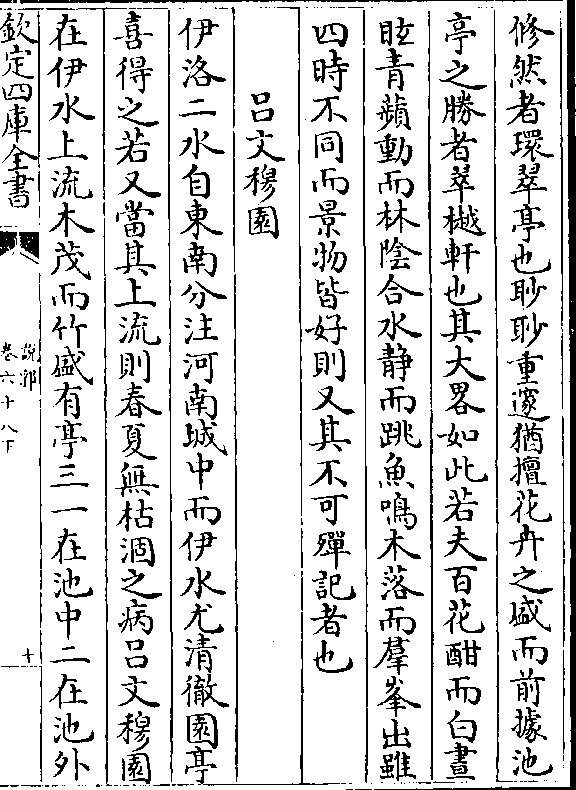 翛然者環翠亭也眇眇重邃猶擅花卉之盛而前據池
亭之勝者翠樾軒也其大畧如此若夫百花酣而白晝
眩青蘋動而林陰合水静而跳魚鳴木落而羣峯出雖
四時不同而景物皆好則又其不可殫記者也
吕文穆園
伊洛二水自東南分注河南城中而伊水尤清徹園亭
喜得之若又當其上流則春夏無枯涸之病吕文穆園
在伊水上流木茂而竹盛有亭三一在池中二在池外
欽定四庫全書
説郛
卷六十八下
十